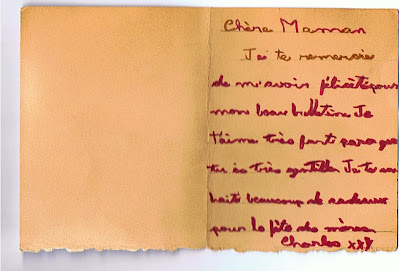 Chère Maman
Je te remercie
de m'avoir félicité pour
mon beau bulletin Je
t'aime très fort parce que
tu es très gentille Je te sou
haite beaucoup de cadeaux
pour la fête des mères
Charles xxx